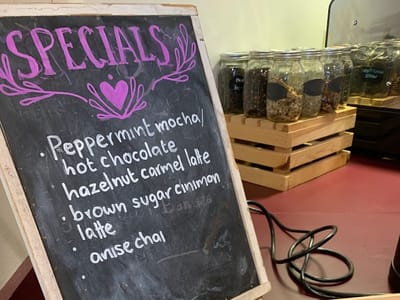 SPECIALS
· Peppermint mocha/
hot chocolate
· hazelnut carmel latte
· brown sugar cinimon
· latte
· anise chai